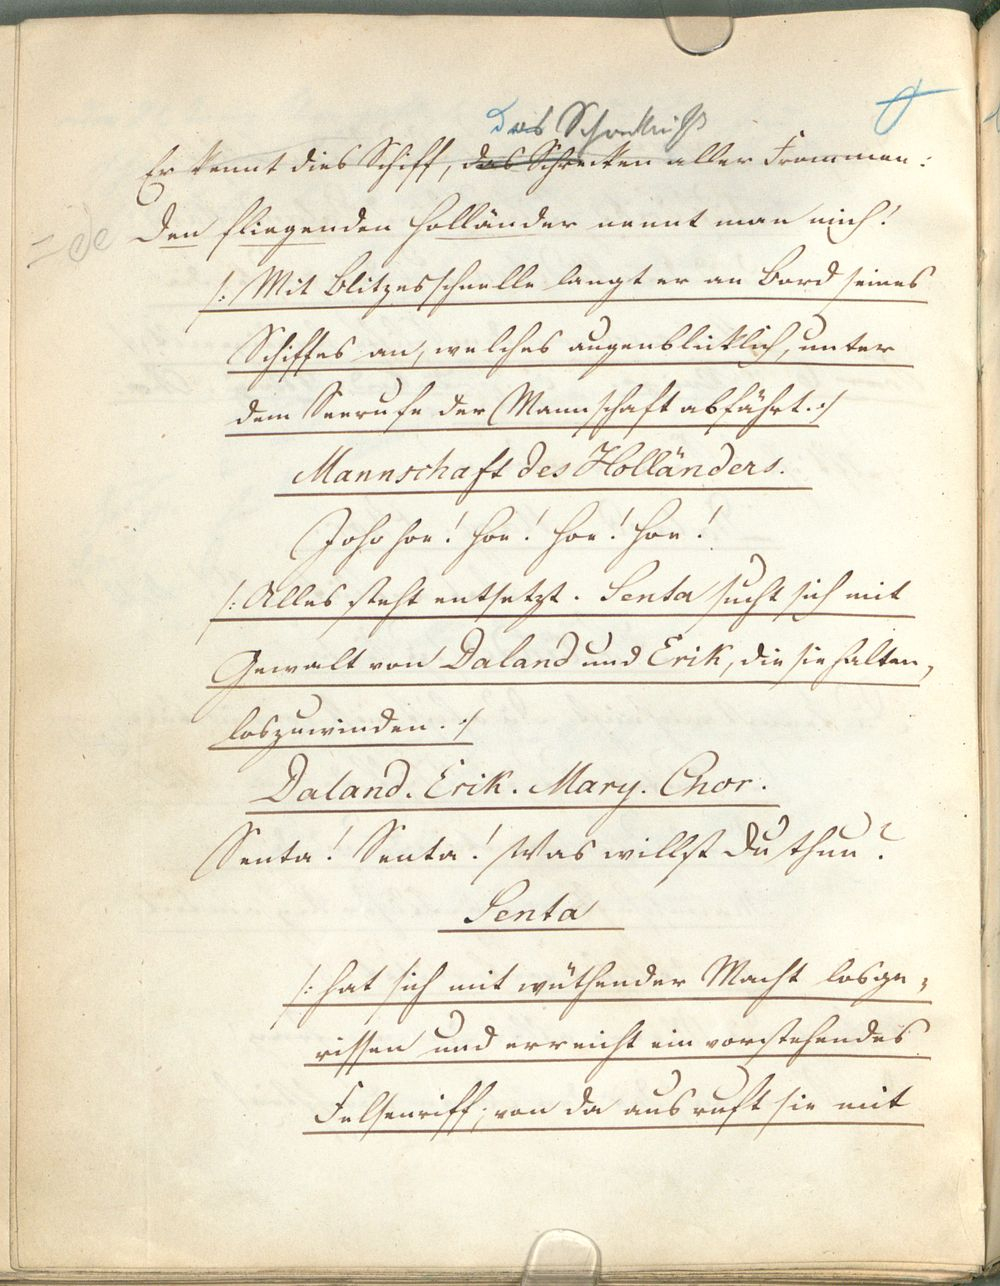 das Schreckniß
Er kennt dies Schiff, das Schrecken aller Frommen:
Den fliegenden Holländer nennt man mich!
/: Mit Blitzesschnelle langt er an Bord seines
Schiffes an, welches augenblicklich, unter
dem Seerufe der Mannschaft abfährt. :/
Mannschaft des Holländers.
Joho hoe! hoe! hoe! hoe!
/: Alles steht entsetzt. Senta sucht sich mit
Gewalt von Daland und Erik, die sie halten,
loszuwinden. :/
Daland. Erik. Mary. Chor.
Senta! Senta! Was willst Du thun?
Senta
/: hat sich mit wüthender Macht losge-
rissen und erreicht ein vorstehendes
Felsenriff; von da aus ruft sie mit